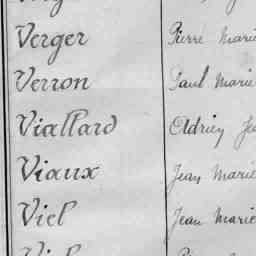 Verger Pierre Marie
Verron Paul Marie
Viallard Adrien
Viaux Jean Marie
Viel Jean Marie